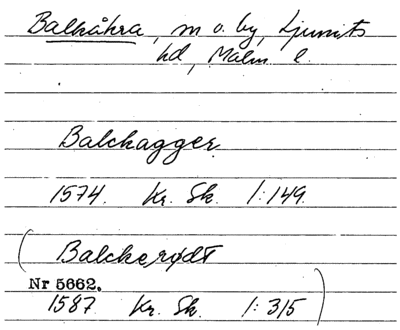 Balkåkra, m o. by, Ljunits
hd, Malm. l.
Balckagger
1574. Kr. Sk. 1:149.
(Balckerødt
Nr 5662.
1587. Kr. Sk. 1:315)